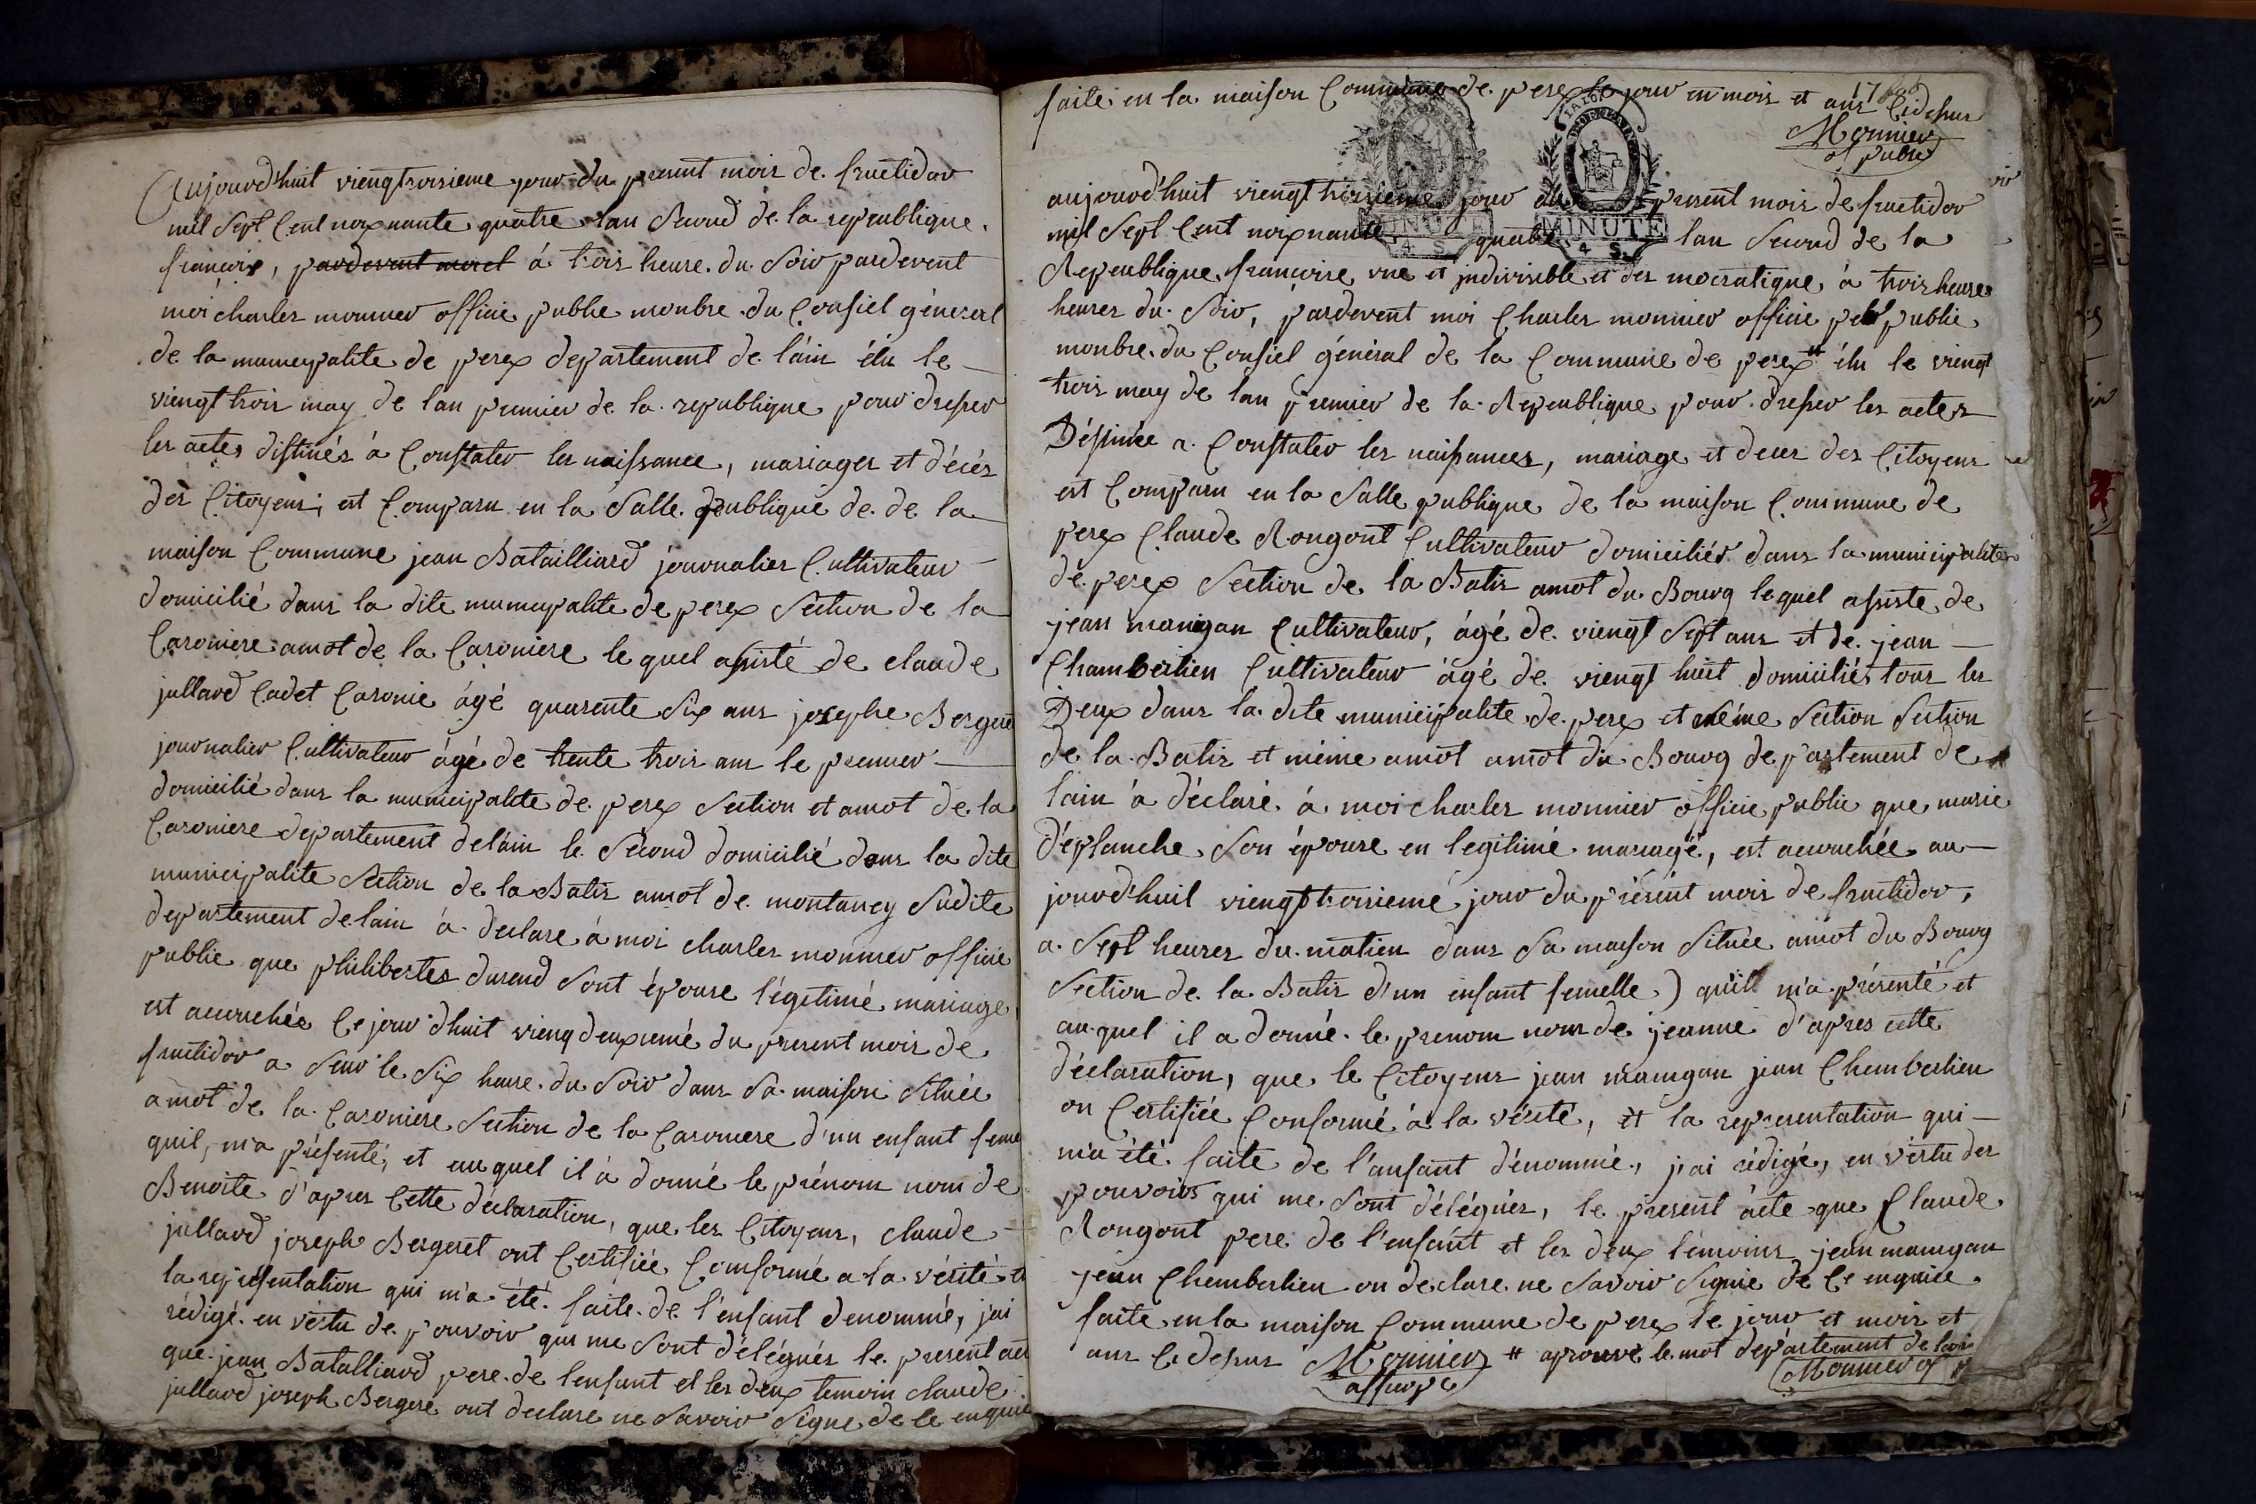 Aujourd'huit viengtroisieme jour du present mois de fructidor
mil Sept Cent noixnante quatre lan Second de la republique
francoise, pardevent moiel à trois heure du Soir pardevent
moi charles monnier officie publie monbre du Consiel géneral
de la municipalite de perex departement de l'áin élu le
viengt trois may de lan premier de la republique pour dresser
les actes distinés à Constater les naissance, mariages et décés
des Citoyens; est Comparu en la Salle publique de de la
maison Commune jean Batailliard journalier Cultivateur
domicilié dans la dite municipalite de perex Section de la
Caroniere amot de la Caroniere le quel assisté de claude
jullard Cadet Caronie âgé quarente Six ans josephe Bergeret
journalier Cultivateur âgé de trente trois ans le premier
domicilié dans la municipalite de perex Section et amot de la
Caroniere departement de láin le Second domicilié dans la dite
municipalite Section de la Batis amot de montancy Sudite
departement de lain à declare à moi charles monnier officie
publie que philibertes durand Sont épouse légitimé mariage
est acouchée Ce jour d'huit vieng deuxiemé du present mois de
fructidor a Seur le Six heure du Soir dans Sa maison Située
amot de la Caroniere Section de la Caroniere d'un enfant feme
quil, m'a présenté, et auquel il à donné le prénom nom de
Benoite d'apres Cette déclaration, que les Citoyens, claude
jullard joseph Bergeret ont Certifiée Conformé a la vérité et
la représentation qui m'a été faite de l'enfant denommé, j'ai
rédigé en vértu de pouvoir qui me Sont délégués le present acte
que jean Batalliard pere de lenfant et les deux temoin claude
jullard joseph Bergere ont declare ne Savoir Signe de Ce enquie
faite en la maison Commune de perex le jour en mois et ans Cidessus
17
Monnier
of publie
aujourd'huit viengt troisieme jour du present mois de fructidor
mil Sept Cent noixnante quatre lan Second de la
MINUTE
4 S.
MINUTE
4 S.
Republique francoise une et jndivisible et des mocratique à trois heures
heures du Soir, pardevent moi Charles monnier officie publie
monbre du Consiel général de la Commune de perex # élu le viengt
trois may de lan premier de la Republique pour dresser les actes
Déstinée a Constater les naissances, mariage et deces des Citoyens
est Comparu en la Salle publique de la maison Commune de
perex Claude Rongont Cultivateur domiciliés dans la municipalite
de perex Section de la Batis amot du Bourg lequel assiste de
jean mangan Cultivateur, âgé de viengt Sept ans et de jean
Chamberlien Cultivateur âgé de viengt huit domiciliés tous les
Deux dans la dite municipalite de perex et même Section Section
de la Batis et même amot amot du Bourg departement de
láin à déclaré à moi charles monnier officie publie que marie
déplanche Son épouse en legitimé mariagé, est acouchée au
jourd'huit viengt troisiemé jour du présent mois de fructidor,
a Sept heures du matien dans Sa maison Située amot du Bourg
Section de la Batis d'un enfant femelle) qu'ill m'a présenté et
auquel il a donné le prenom nom de jeanne d'apres cette
déclaration, que le Citoyens jean maingan jean Chemberlien
on Certifiée Conformé à la vérité, et la representation qui
m'a été faite de l'anfant dénommé, j'ai rédigé, en vértu des
pouvoirs qui me Sont délégués, le present àcte que Claude
Rongont pere de l'enfant et les deux témoins jean maingan
jean Chemberlien on declare ne Savoir Signie de Ce enquiee
faite en la maison Commune de perex le jour et mois et
ans Cidessus Monnier # aprouve le mot departement de lain
Monnier of p